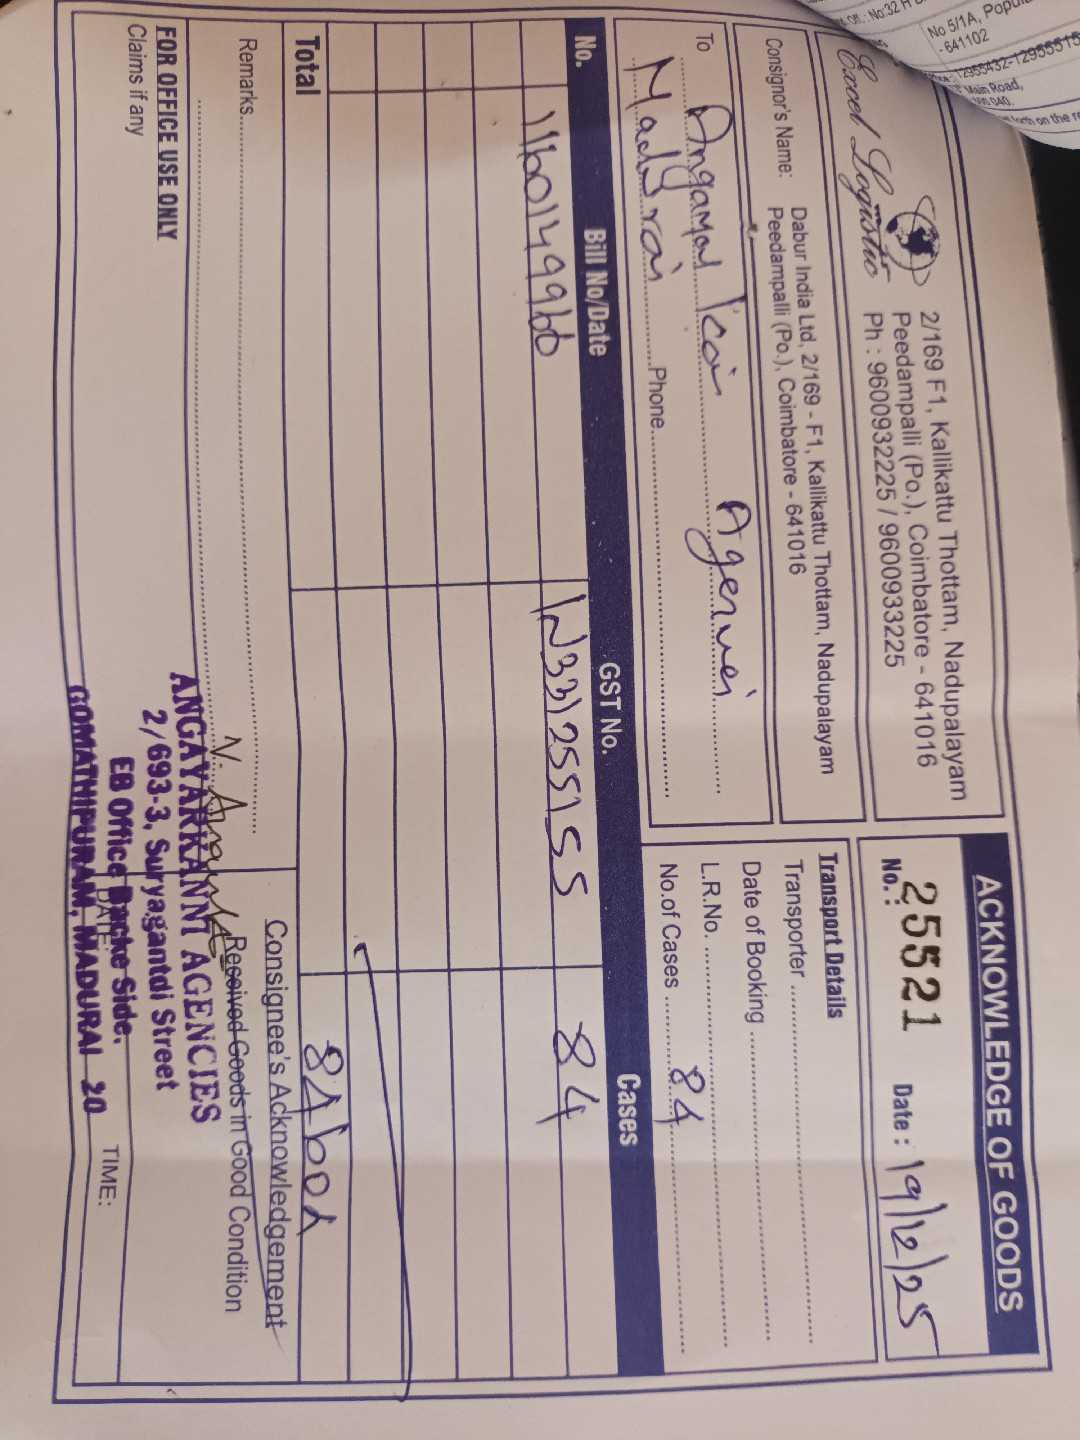 No 5/1A, Popul
- 641102
12955432-12955515
Main Road,
Excel Logistic
2/169 F1, Kallikattu Thottam, Nadupalayam
Peedampalli (Po.), Coimbatore - 641016
Ph : 9600932225 / 9600933225
ACKNOWLEDGE OF GOODS
No.: 25521 Date : 19/12/25
Consignor's Name: Dabur India Ltd, 2/169 - F1, Kallikattu Thottam, Nadupalayam
Peedampalli (Po.), Coimbatore - 641016
To Angayal Kani
Phone
Transport Details
Transporter
Date of Booking
L.R.No.
No.of Cases 84
No. Bill No/Date GST No. Cases
IN33125515S 84
Total 84box
Remarks
Consignee's Acknowledgement
Received Goods in Good Condition
FOR OFFICE USE ONLY
Claims if any
ANGAYARKANNI AGENCIES
2/693-3, Suryagantdi Street
EB Office Backe Side.
GOMATHIPURAM, MADURAI 20
DATE:
TIME: